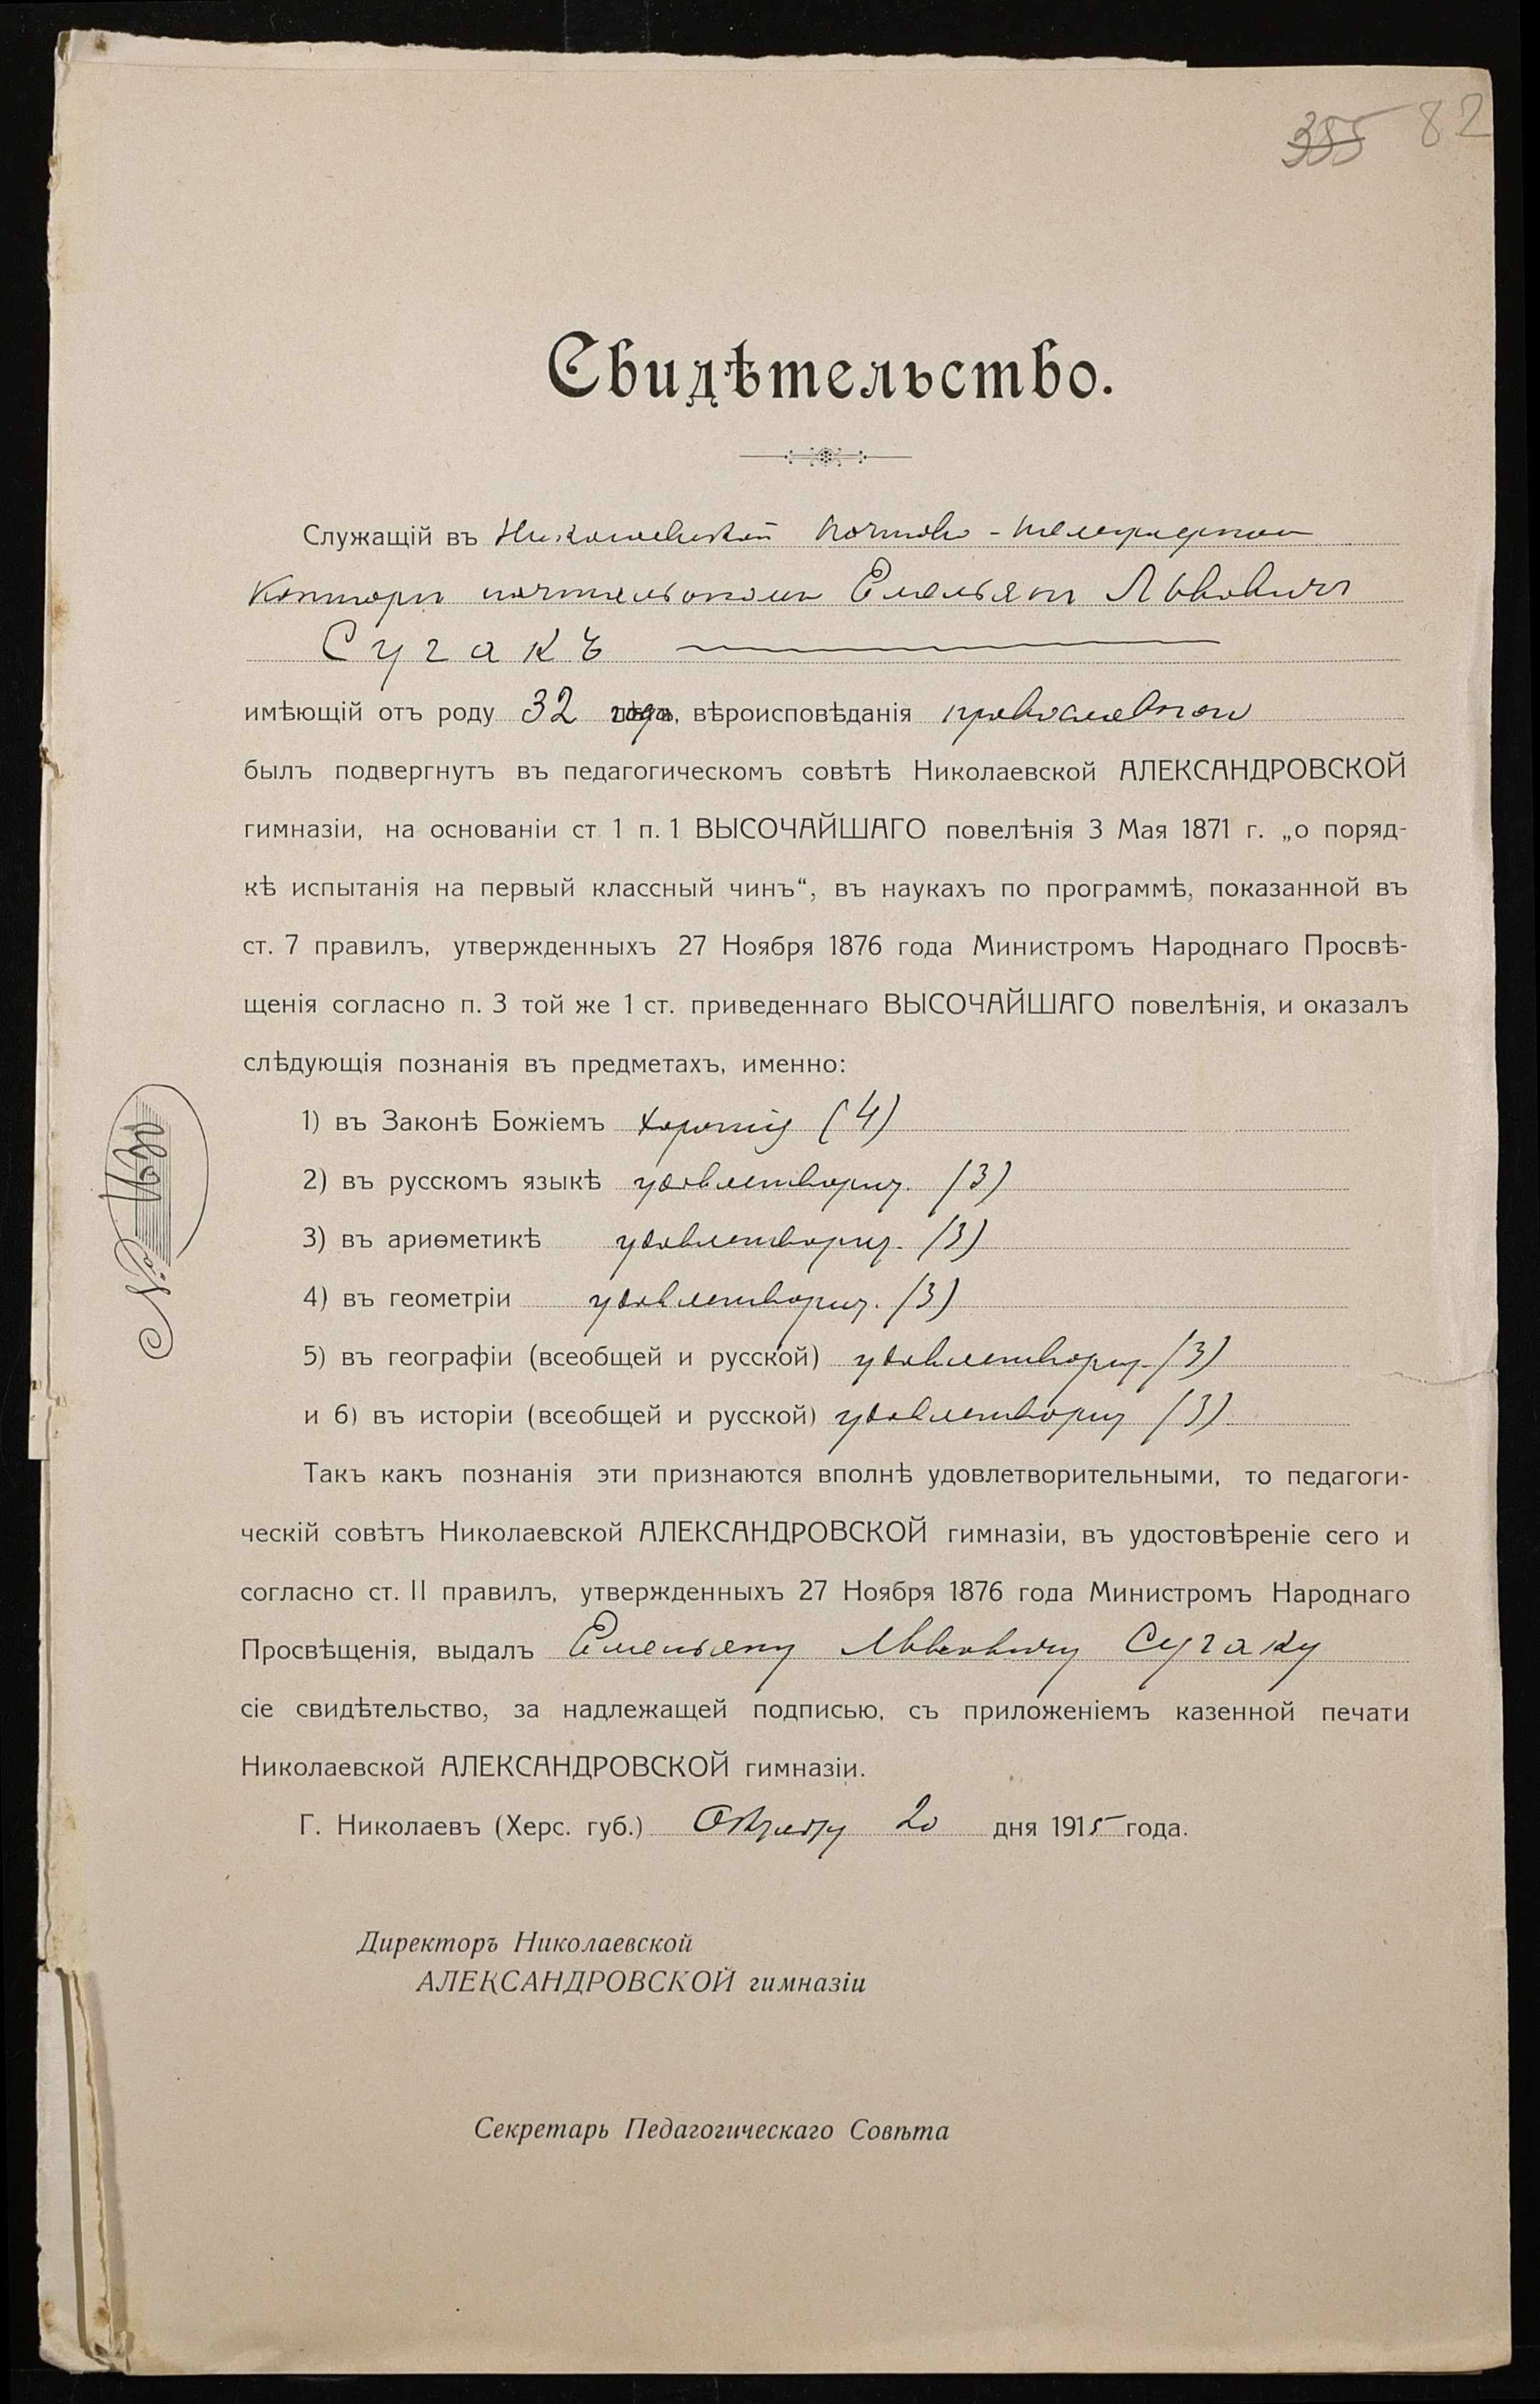 355 82
Свидѣтельство.
Служащій въ Николаевской почтово-телеграфной
Конторѣ почтальономъ Емельянъ Львовичъ
Сугакъ
имѣющій отъ роду 32 года, вѣроисповѣданія православнаго
былъ подвергнутъ въ педагогическомъ совѣтѣ Николаевской АЛЕКСАНДРОВСКОЙ
гимназіи, на основаніи ст 1 п. 1 ВЫСОЧАЙШАГО повелѣнія 3 Мая 1871 г. „о поряд-
кѣ испытанія на первый классный чинъ“, въ наукахъ по программѣ, показанной въ
ст. 7 правилъ, утвержденныхъ 27 Ноября 1876 года Министромъ Народнаго Просвѣ-
щенія согласно п. 3 той же 1 ст. приведеннаго ВЫСОЧАЙШАГО повелѣнія, и оказалъ
слѣдующія познанія въ предметахъ, именно:
1) въ Законѣ Божіемъ хорошія (4)
2) въ русскомъ языкѣ удовлетворит. (3)
3) въ ариѳметикѣ удовлетворит. (3)
4) въ геометріи удовлетворит. (3)
5) въ географіи (всеобщей и русской) удовлетворит. (3)
и 6) въ исторіи (всеобщей и русской) удовлетворит (3)
Такъ какъ познанія эти признаются вполнѣ удовлетворительными, то педагоги-
ческій совѣтъ Николаевской АЛЕКСАНДРОВСКОЙ гимназіи, въ удостовѣреніе сего и
согласно ст. II правилъ, утвержденныхъ 27 Ноября 1876 года Министромъ Народнаго
Просвѣщенія, выдалъ Емельяну Львовичу Сугаку
сіе свидѣтельство, за надлежащей подписью, съ приложеніемъ казенной печати
Николаевской АЛЕКСАНДРОВСКОЙ гимназіи.
Г. Николаевъ (Херс. губ.) 20 дня 1915 года.
Директоръ Николаевской
АЛЕКСАНДРОВСКОЙ гимназіи
Секретарь Педагогическаго Совѣта
№